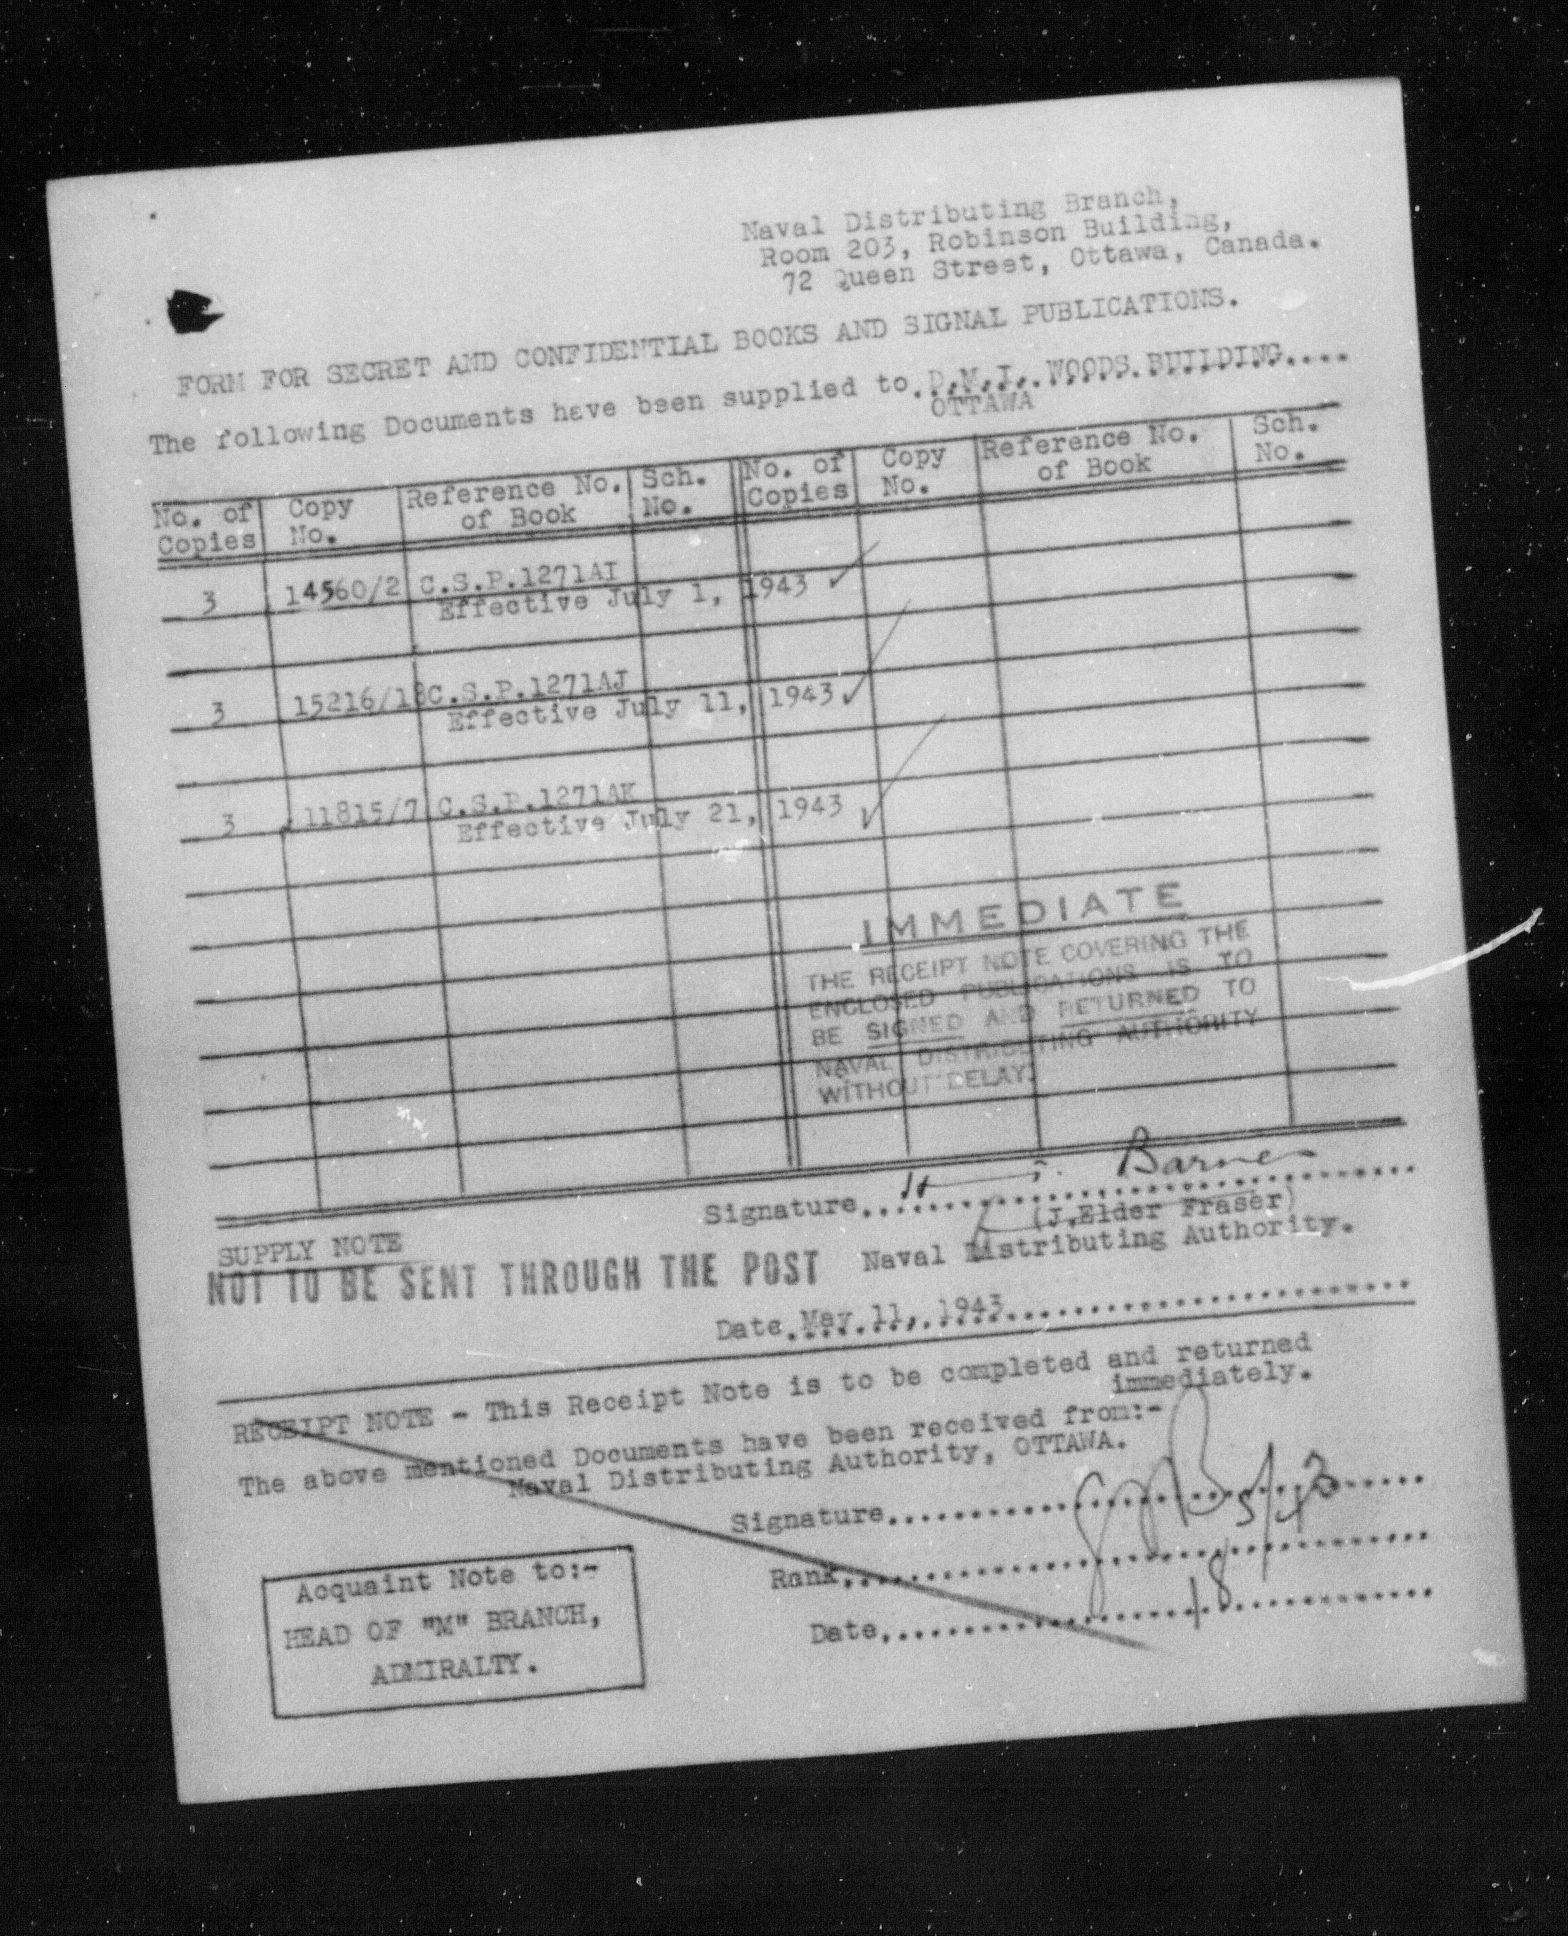 Naval Distributing Branch,
Room 203, Robinson Building,
72 Queen Street, Ottawa, Canada.
FORM FOR SECRET AND CONFIDENTIAL BOOKS AND SIGNAL PUBLICATIONS.
The following Documents have been supplied to D.M.I. WOODS BUILDING....
OTTAWA
No. of Copies Copy No. Reference No. of Book Sch. No. No. of Copies Copy No. Reference No. of Book Sch. No.
3 14560/2 C.S.P.1271AI
Effective July 1, 1943 ✓
3 15216/18 C.S.P.1271AJ
Effective July 11, 1943 ✓
3 11815/7 C.S.P.1271AK
Effective July 21, 1943 ✓
IMMEDIATE
THE RECEIPT NOTE COVERING THE
ENCLOSED PUBLICATIONS IS TO
BE SIGNED AND RETURNED TO
NAVAL DISTRIBUTING AUTHORITY
WITHOUT DELAY.
Signature.......... Barnes
(J.Elder Fraser)
SUPPLY NOTE
Naval Distributing Authority.
NOT TO BE SENT THROUGH THE POST
Date May 11, 1943
RECEIPT NOTE - This Receipt Note is to be completed and returned
immediately.
The above mentioned Documents have been received from:-
Naval Distributing Authority, OTTAWA.
Signature..........
Rank..........
Date.......... 18/5/43
Acquaint Note to:-
HEAD OF "M" BRANCH,
ADMIRALTY.